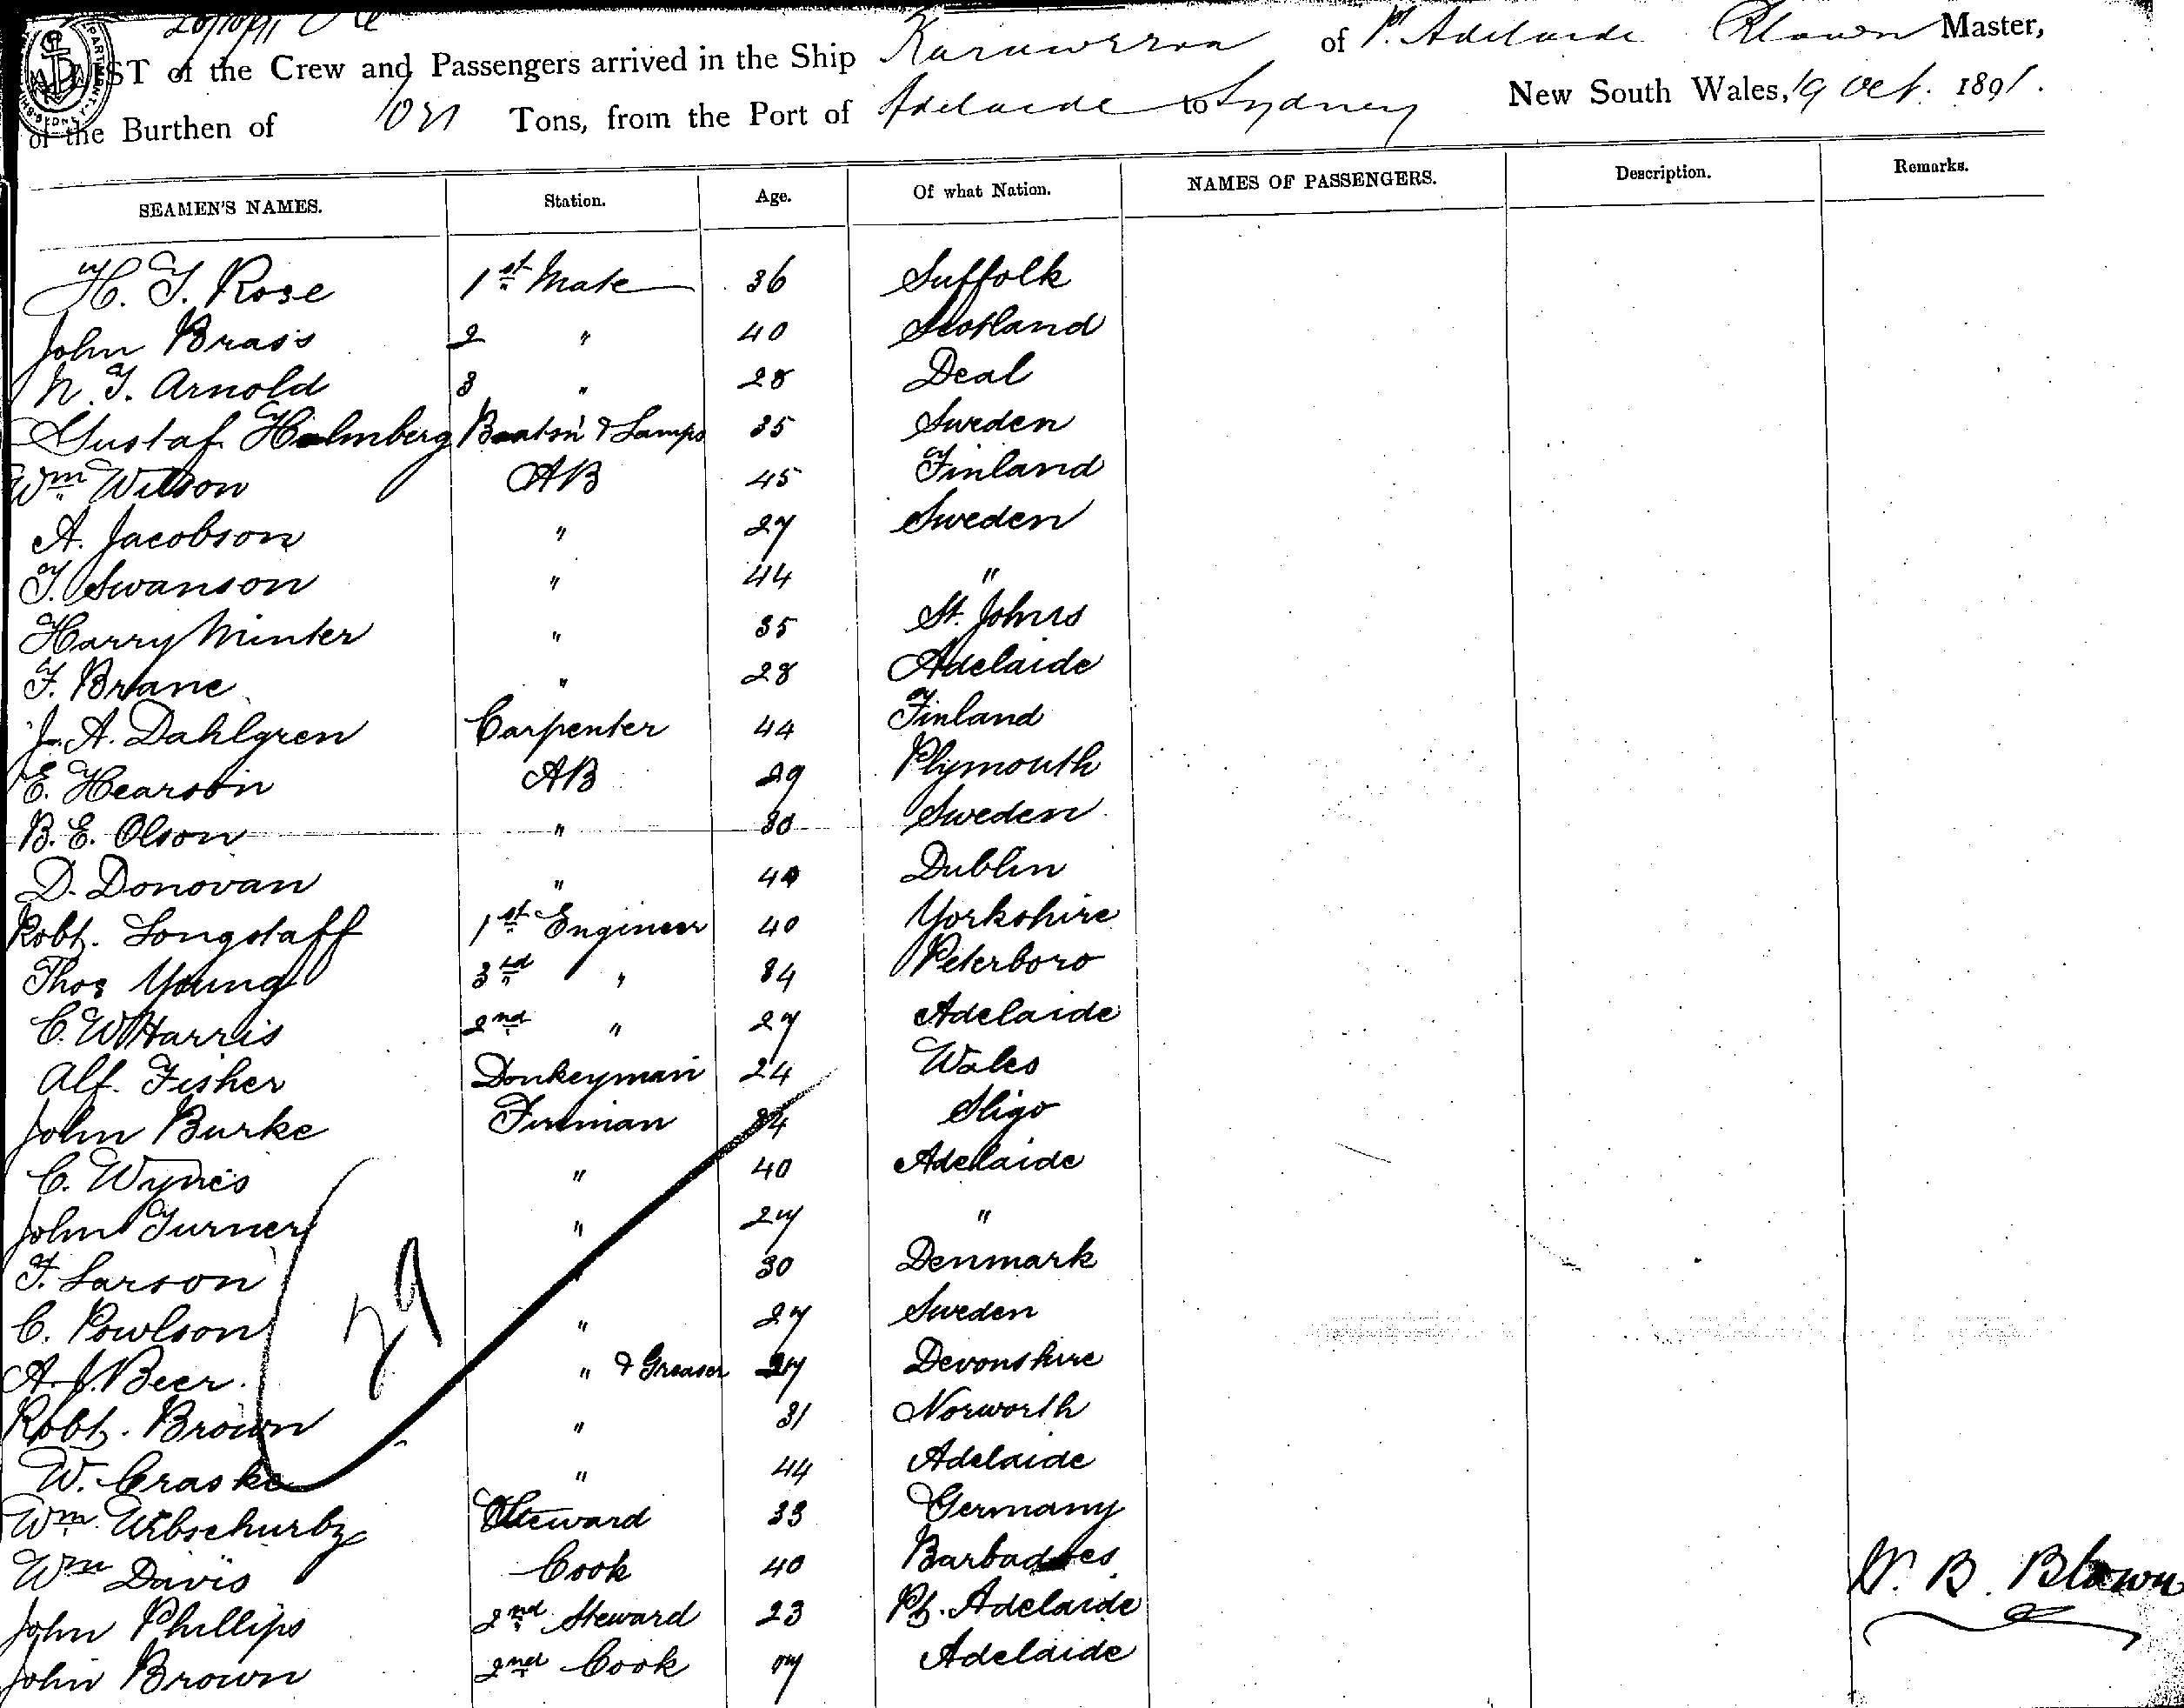 LIST of the Crew and Passengers arrived in the Ship of Pt. Adelaide Blown Master,
of the Burthen of Tons, from the Port of Adelaide to Sydney New South Wales, 19 Oct. 1891.
SEAMEN'S NAMES. Station. Age. Of what Nation. NAMES OF PASSENGERS. Description. Remarks.
H. T. Rose 1st Mate 36 Suffolk
John Brass 2 " 40 Scotland
N. T. Arnold 3 " 28 Deal
Gustaf Holmberg Boatsn & Lamps 35 Sweden
Wm Wilson AB 45 Finland
A. Jacobson " 27 Sweden
T. Swanson " 44 "
Harry Minter " 35 St. Johns
F. Brane " 28 Adelaide
J. A. Dahlgren Carpenter 44 Finland
E. Hearson AB 29 Plymouth
B. E. Olson " 30 Sweden
D. Donovan " 40 Dublin
Robt. Longstaff 1st Engineer 40 Yorkshire
Thos Young 3rd " 34 Peterboro
C. W Harris 2nd " 27 Adelaide
Alf. Fisher Donkeyman 24 Wales
John Burke Fireman 34 Sligo
C. Wynes " 40 Adelaide
John Turner " 27 "
F. Larson " 30 Denmark
C. Powlson " 27 Sweden
A. J. Beer " & Greaser 27 Devonshire
Robt. Brown " 31 Norworth
W. Craske " 44 Adelaide
Wm. Steward 33 Germany
Wm Davis Cook 40 Barbadoes
John Phillips 2nd Steward 23 Pt. Adelaide
John Brown 2nd Cook 17 Adelaide
29
W. B. Blown